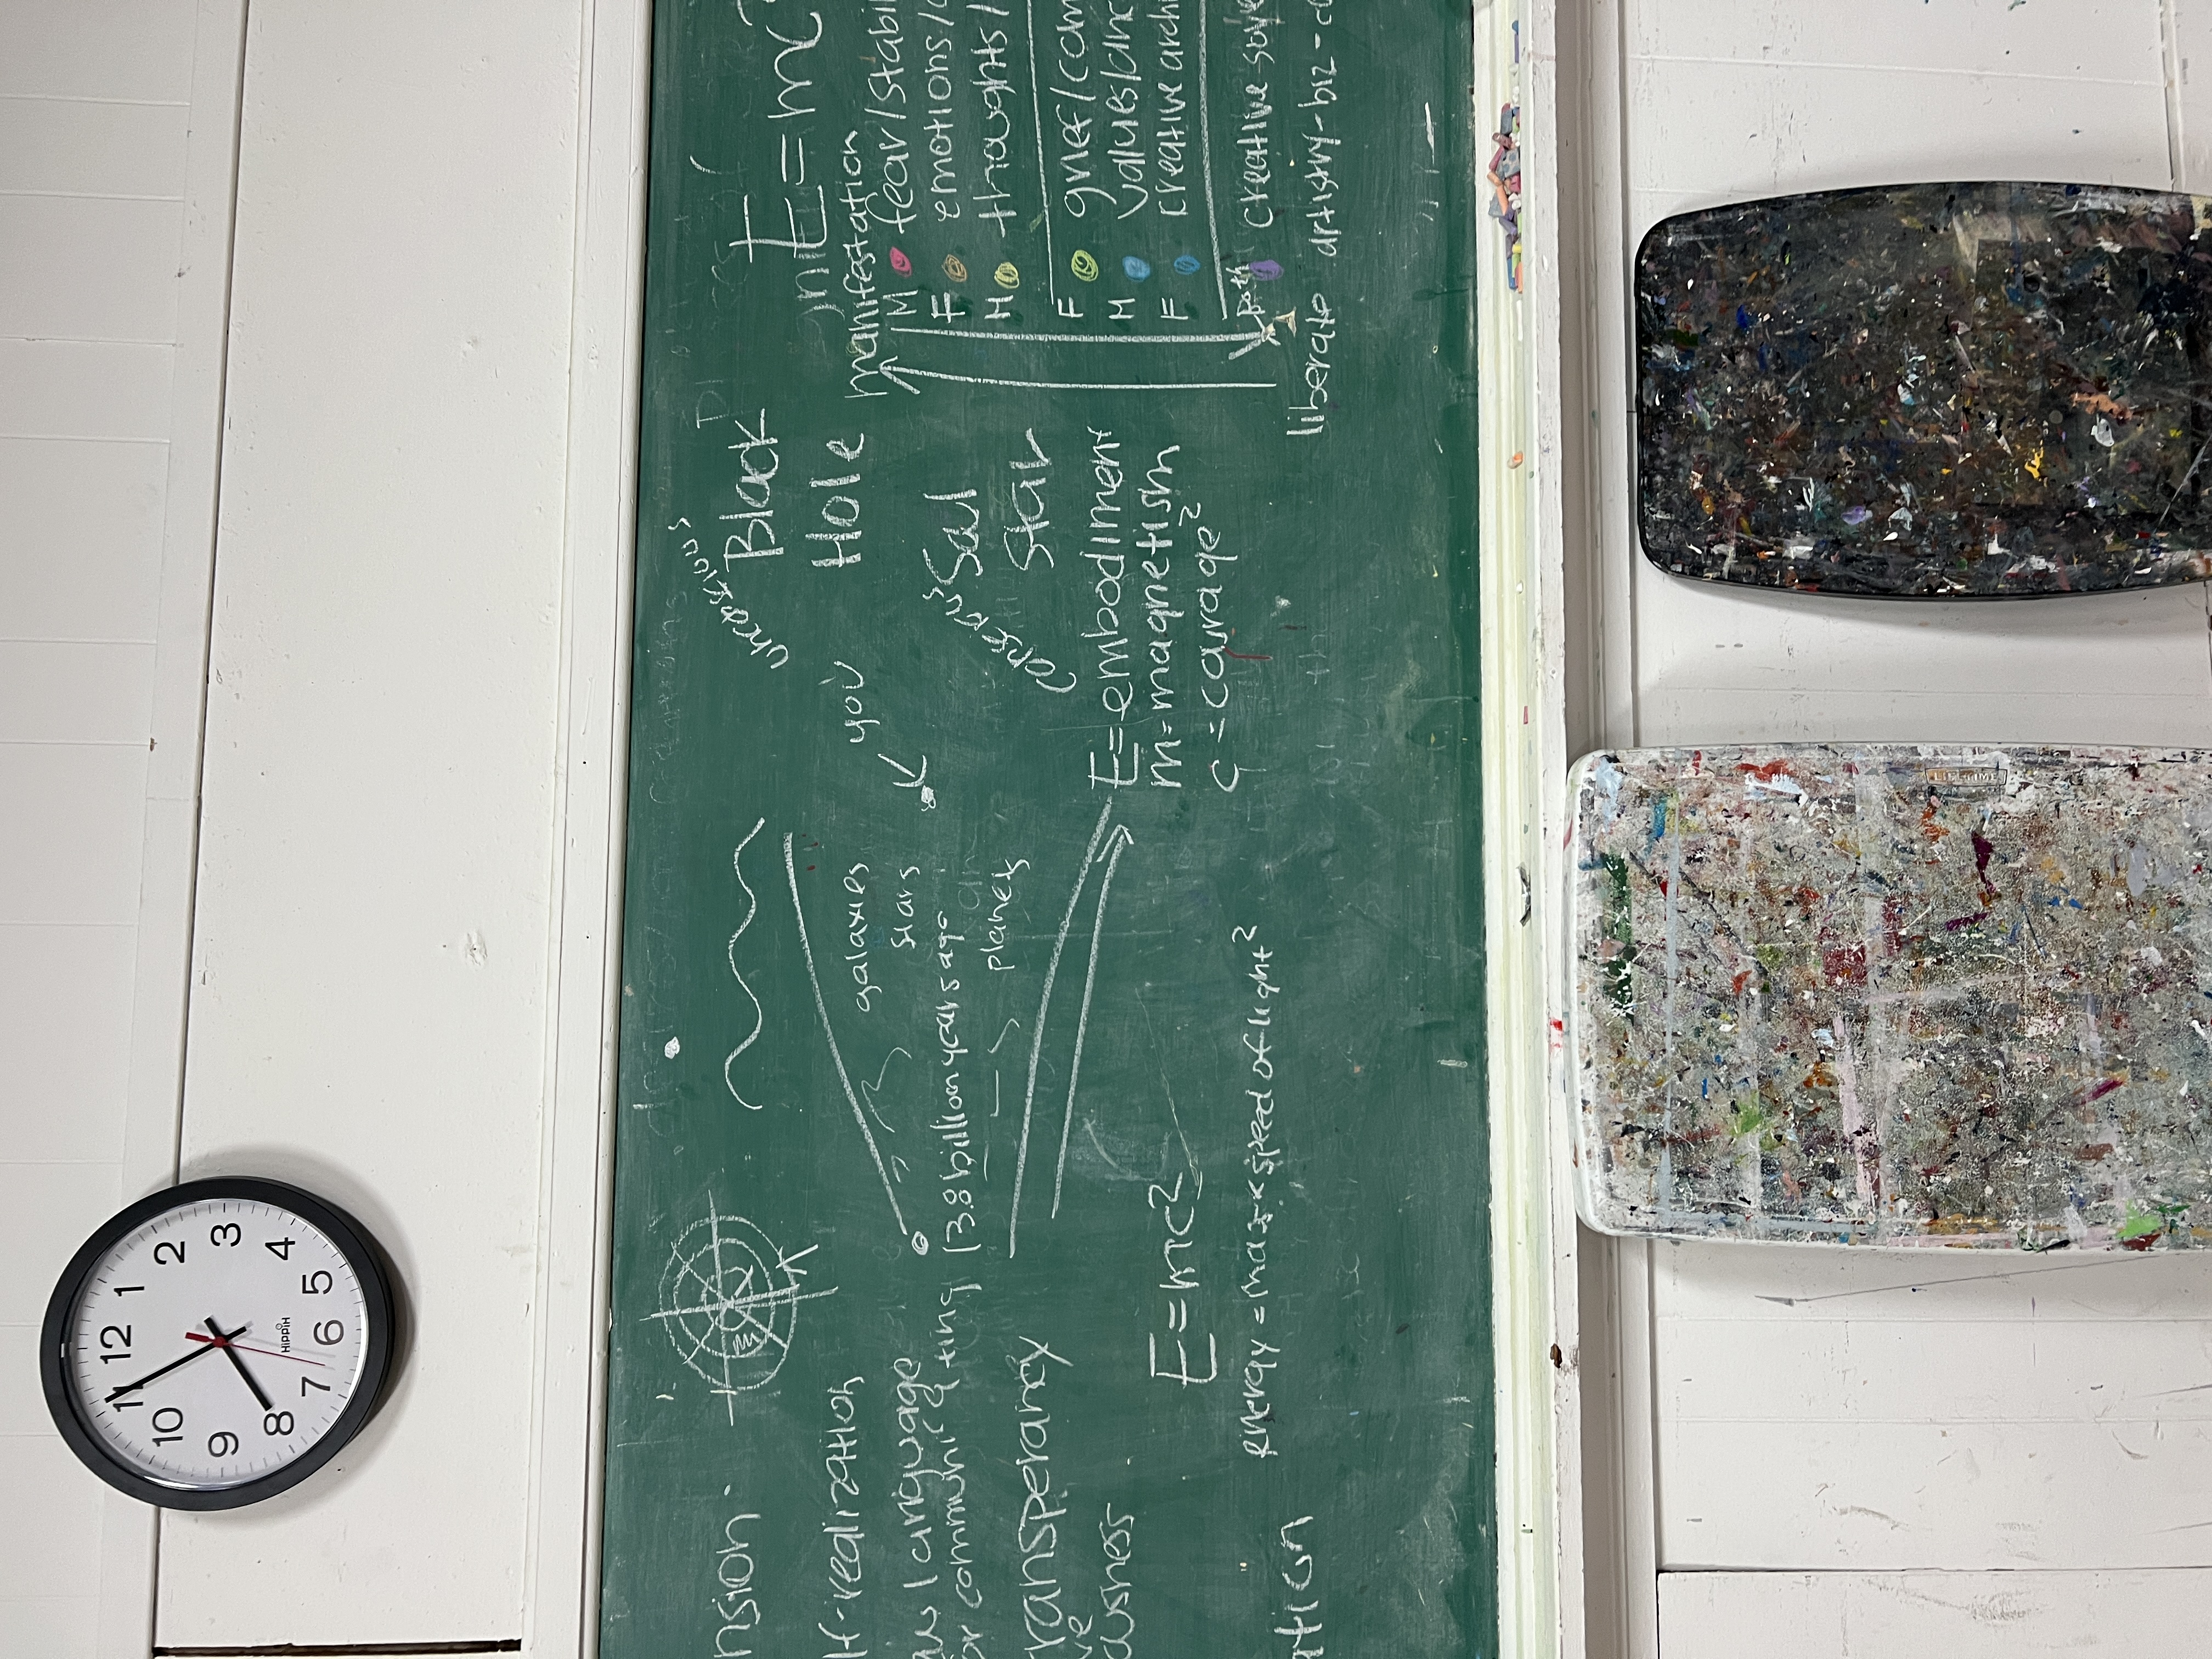 nsion.
lf-realization
language
or communicating
transperancy
ve
ousness
ation
13.8 billion years ago
galaxies
stars
planets
you
E=mc2
energy = mass x speed of light²
unconscious
Black
Hole
conscious
Soul
Star
E=embodiment
m=magnetism
c=courage²
E=mc
manifestation
M fear/stabi
F emotions/
H thoughts/
F grief/com
H values/
F creative archi
Both creative solve
liberate artistry-biz-c
12
1
2
3
4
5
6
7
8
9
10
11
HIPPIH
LIFETIME